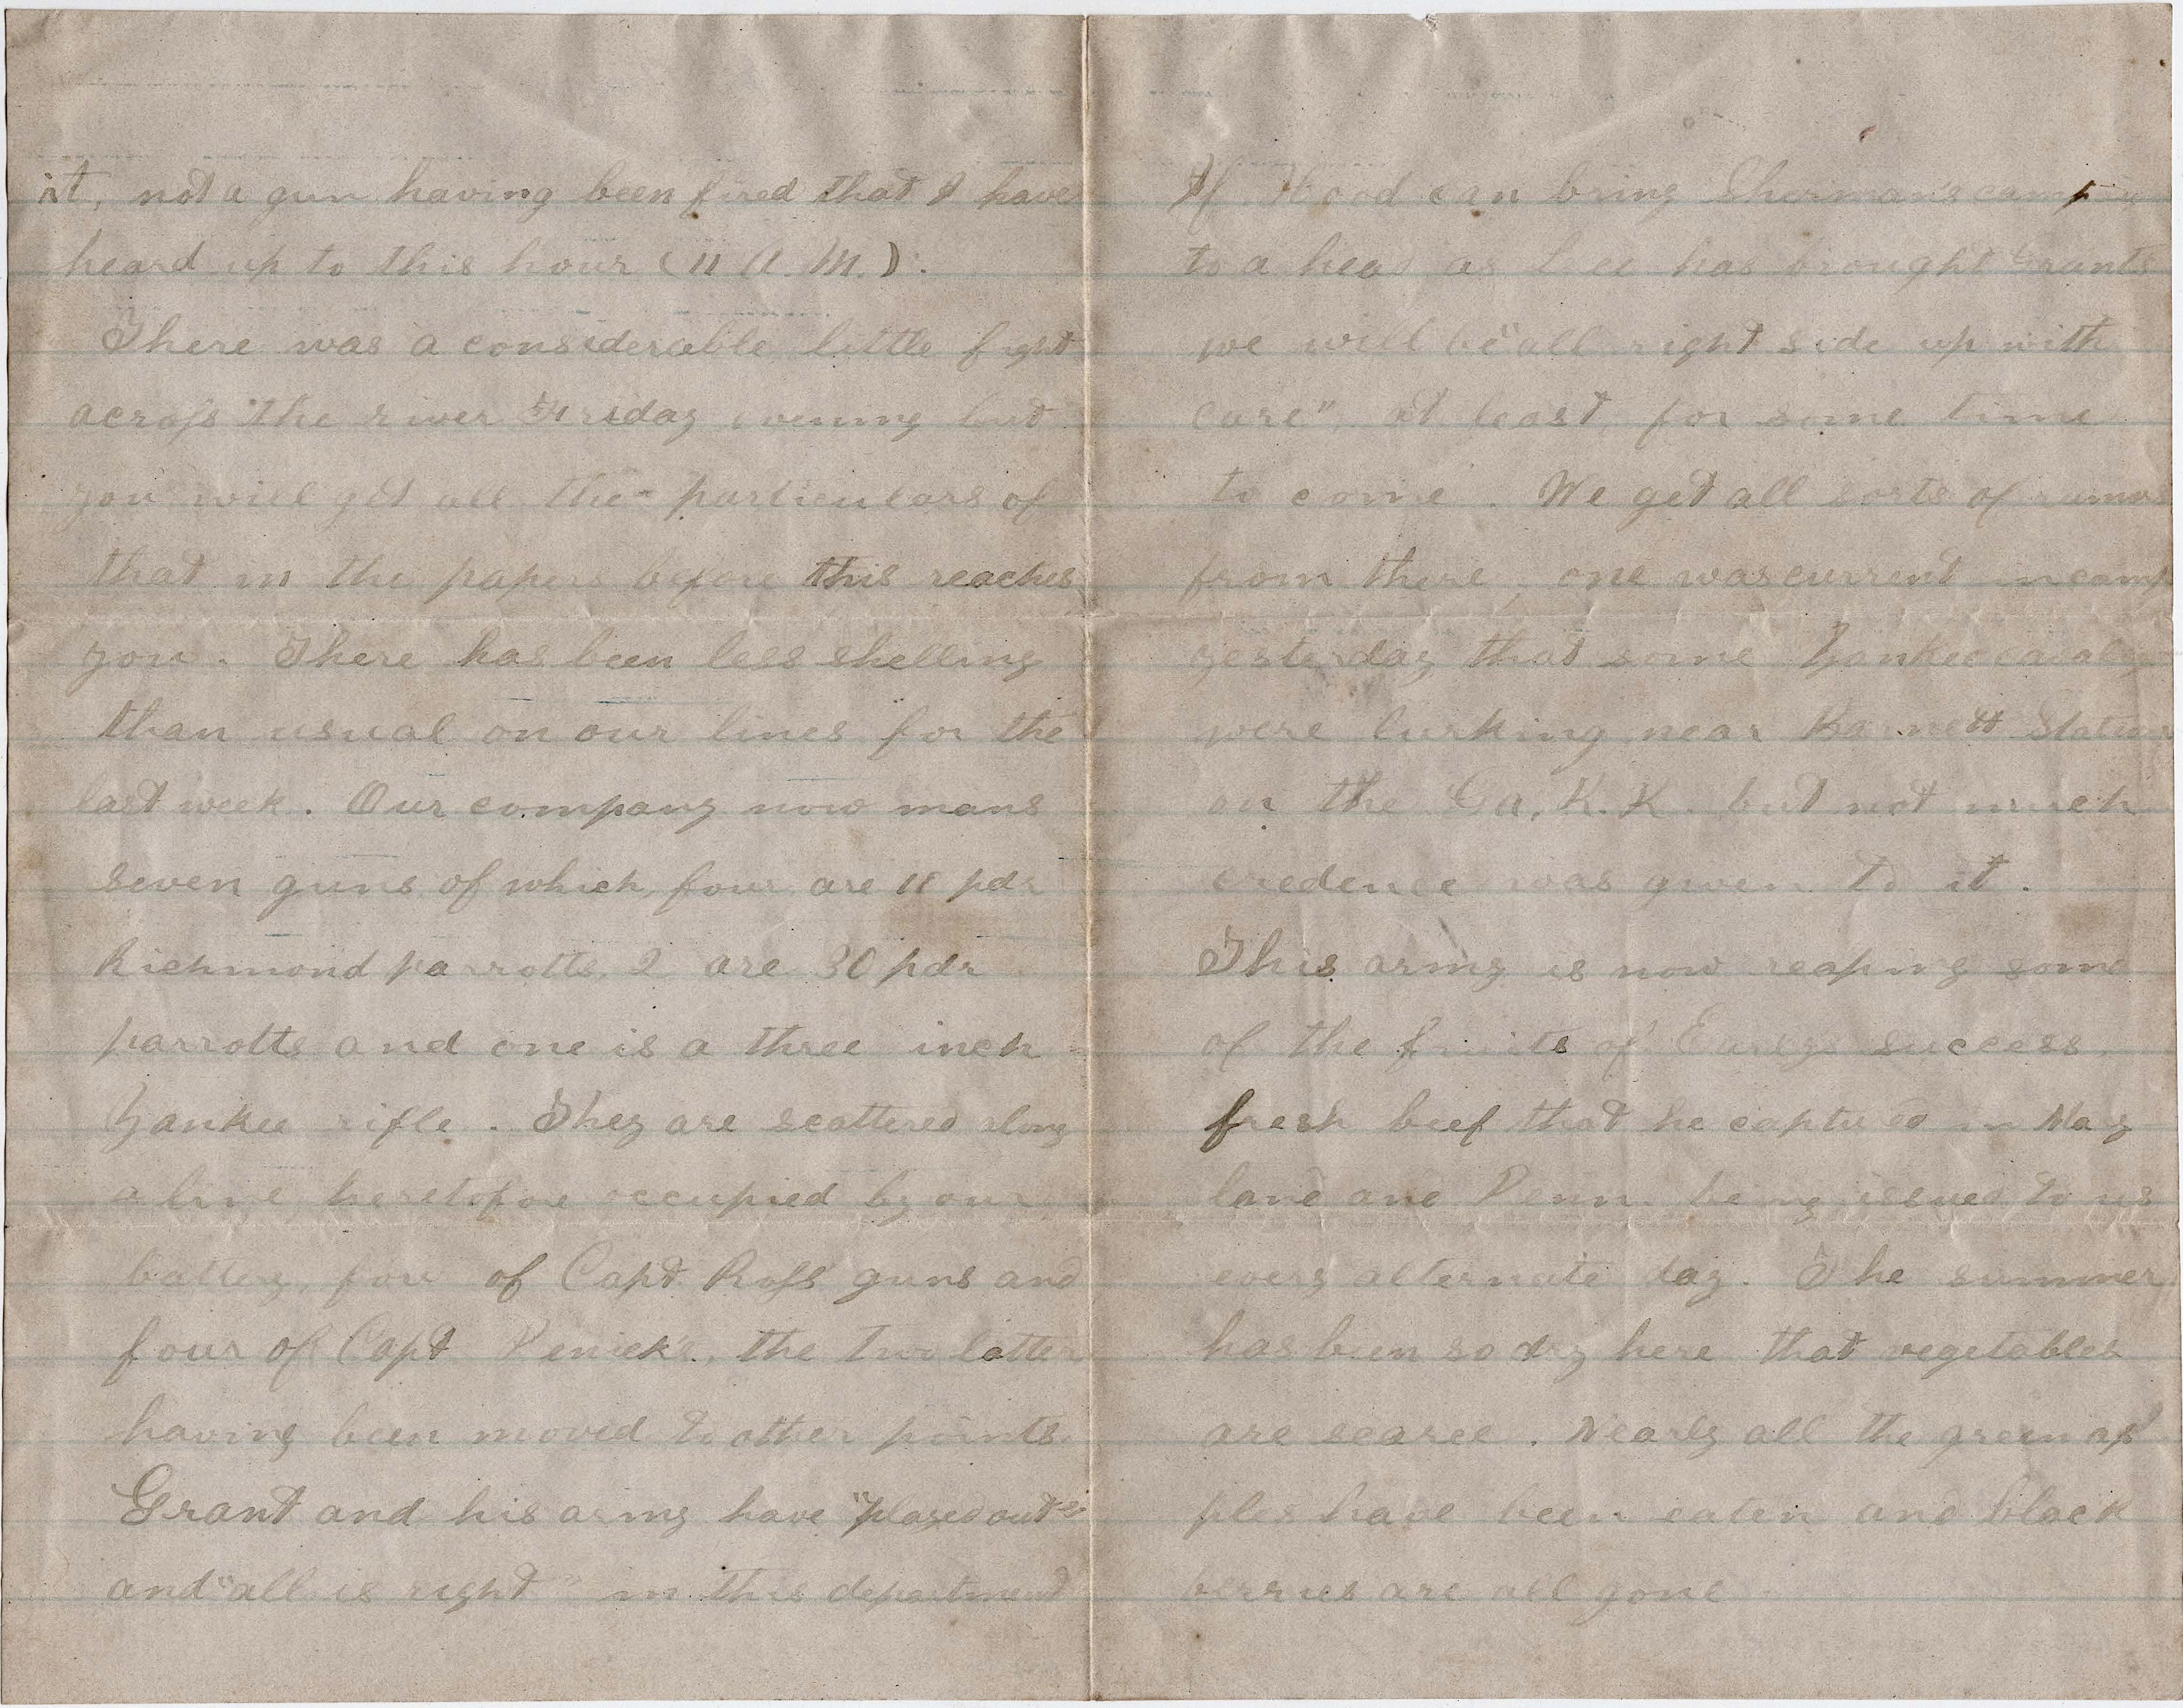 it, not a gun having been fired that I have
heard up to this hour (11 A. M.).
There was a considerable little fight
across the river Friday evening but
you will get all the particulars of
that in the papers before this reaches
you. There has been less shelling
than usual on our lines for the
last week. Our company now mans
seven guns of which four are 18 pdr
Richmond parrotts, 2 are 30 pdr
parrotts and one is a three inch
Yankee rifle. They are scattered along
a line heretofore occupied by our
battery, four of Capt Ross' guns and
four of Capt Penick's, the two latter
having been moved to other points.
Grant and his army have "played out"
and "all is right" in this department
If Hood can bring Sherman's
to a head as Lee has brought Grants
we will be "all right side up with
care", at least, for some time
to come. We get all sorts of rumors
from there, one was current in camp
yesterday that some Yankee cavalry
were lurking near Barnett Station
on the Ga. R. R. but not much
credence was given to it.
This army is now reaping some
of the fruits of Earlys success,
fresh beef that he captured in Mary
land and Penn. being issued to us
every alternate day. The summer
has been so dry here that vegetables
are scarce. Nearly all the green ap
ples have been eaten and black
berries are all gone